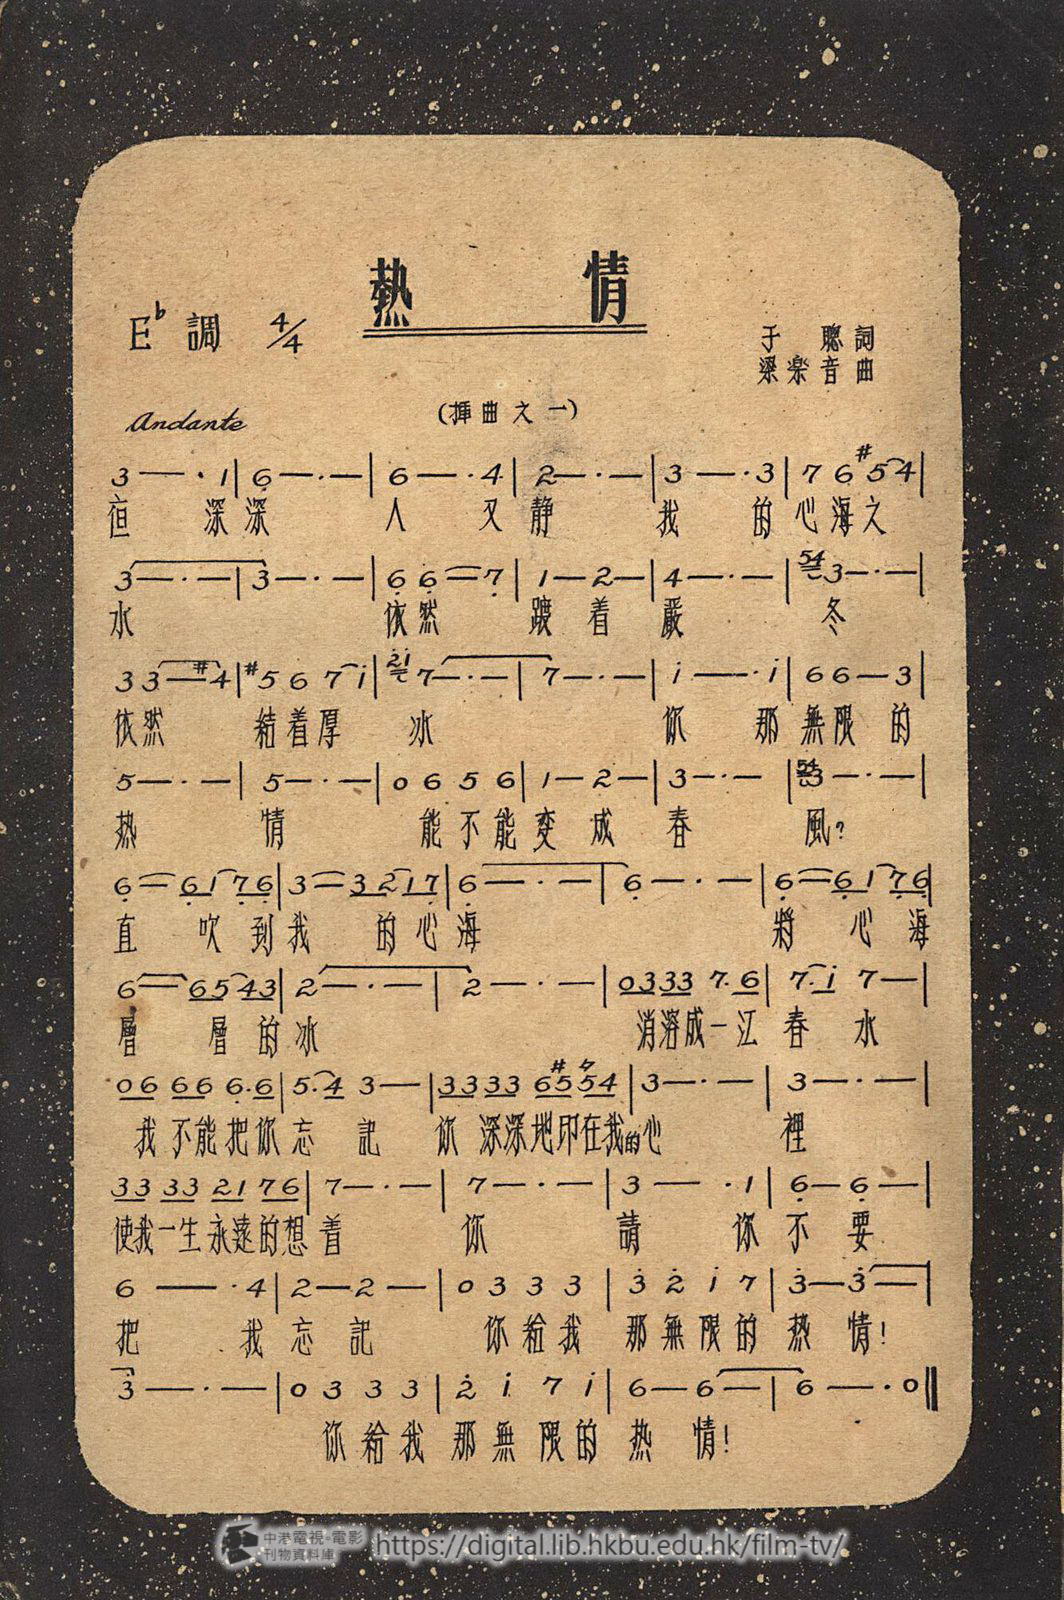 熱情
E♭調 4/4
于聰詞
梁楽音曲
Andante
(插曲之一)
3—·1|6—·—|6—·4|2—·—|3—·3|7 6 #5 4|
深深 人又静 我的心海之
3—·—|3—·—|6 6—7|1—2—|4—·—|54 3—·—|
水 依然 着嚴 冬
3 3—#4|#5 6 7 i|2i 7—·—|7—·—|i—·i|6 6—3|
依然 結着厚 冰 你 那無限的
5—·—|5—·—|0 6 5 6|1—2—|3—·—|54 3—·—|
热 情 能不能变成 春 風?
6—6 1 7 6|3—3 2 1 7|6—·—|6—·—|6—6 1 7 6|
直 吹到我 的心海 將 心海
6—6 5 4 3|2—·—|2—·—|0 3 3 3 7·6|7·i 7—|
層 層的冰 消溶成一江春水
0 6 6 6 6·6|5·4 3—|3 3 3 3 #6 5 5 4|3—·—|3—·—|
我不能把你忘記 你深深地印在我的心 裡
3 3 3 3 2 1 7 6|7—·—|7—·—|3—·1|6—6—|
使我一生永遠的想着 你 請 你不要
6—·4|2—2—|0 3 3 3|3 2 i 7|3—3—|
把 我忘記 你給我 那無限的热情!
3—·—|0 3 3 3|2 i 7 i|6—6—|6—·0‖
你給我 那無限的热情!
中港電視·電影
刊物資料庫
https://digital.lib.hkbu.edu.hk/film-tv/